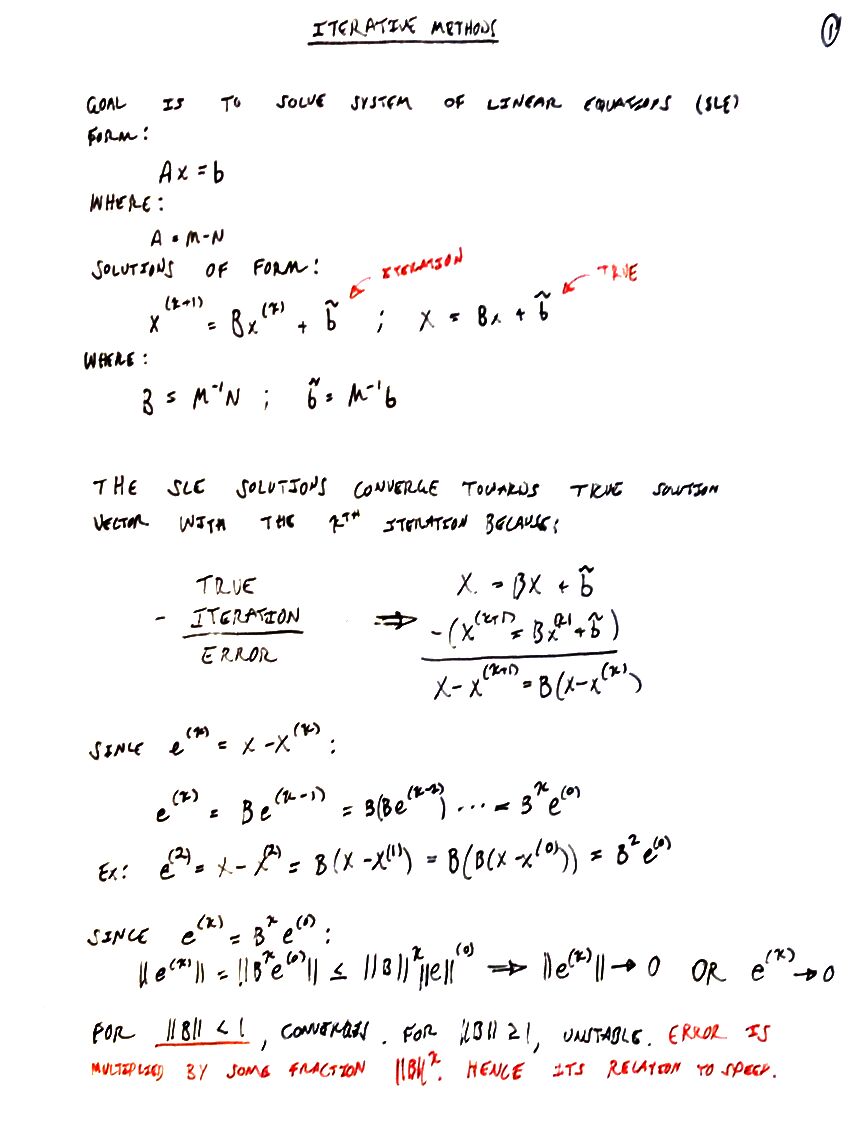 ITERATIVE METHODS
①
GOAL IS TO SOLVE SYSTEM OF LINEAR EQUATIONS (SLE)
FORM:
Ax = b
WHERE:
A = M-N
SOLUTIONS OF FORM:
ITERATION
TRUE
x^(k+1) = Bx^(k) + b̃ ; x = Bx + b̃
WHERE:
B = M⁻¹N ; b̃ = M⁻¹b
THE SLE SOLUTIONS CONVERGE TOWARDS TRUE SOLUTION
VECTOR WITH THE k^TH ITERATION BECAUSE:
TRUE
- ITERATION
ERROR
⇒
x = Bx + b̃
-(x^(k+1) = Bx^(k) + b̃)
x - x^(k+1) = B(x - x^(k))
SINCE e^(k) = x - x^(k) :
e^(k) = Be^(k-1) = B(Be^(k-2)) ... = B^k e^(0)
EX: e^(2) = x - x^(2) = B(x - x^(1)) = B(B(x - x^(0))) = B² e^(0)
SINCE e^(k) = B^k e^(0) :
||e^(k)|| = ||B^k e^(0)|| ≤ ||B||^k ||e||^(0) ⇒ ||e^(k)|| → 0 OR e^(k) → 0
FOR ||B|| < 1, CONVERGES. FOR ||B|| ≥ 1, UNSTABLE. ERROR IS
MULTIPLIED BY SOME FRACTION ||B||^k. HENCE ITS RELATION TO SPEED.